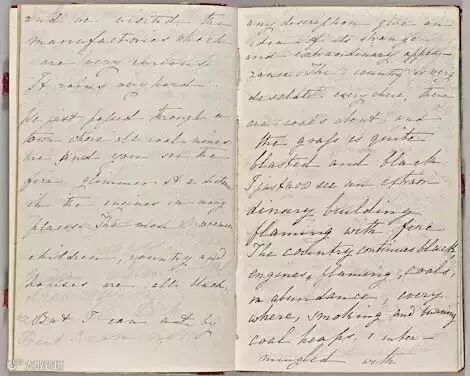 and we visited the
manufactories which
are very curious
It rains very hard.
We just passed through a
town where all coal mines
are and you see the
fire glimmer at a distance
in the engines in many
places. The men, women,
children, country and
houses are all black.
But I can not by
any description give an
idea of its strange
and extraordinary appea-
rance. The country is very
desolate every where; there
are coals about, and
the grass is quite
blasted and black.
I just now see an extraor-
dinary building
flaming with fire.
The country continues black,
engines, flaming, coals,
in abundance, every
where, smoking and burning
coal heaps, inter-
mingled with